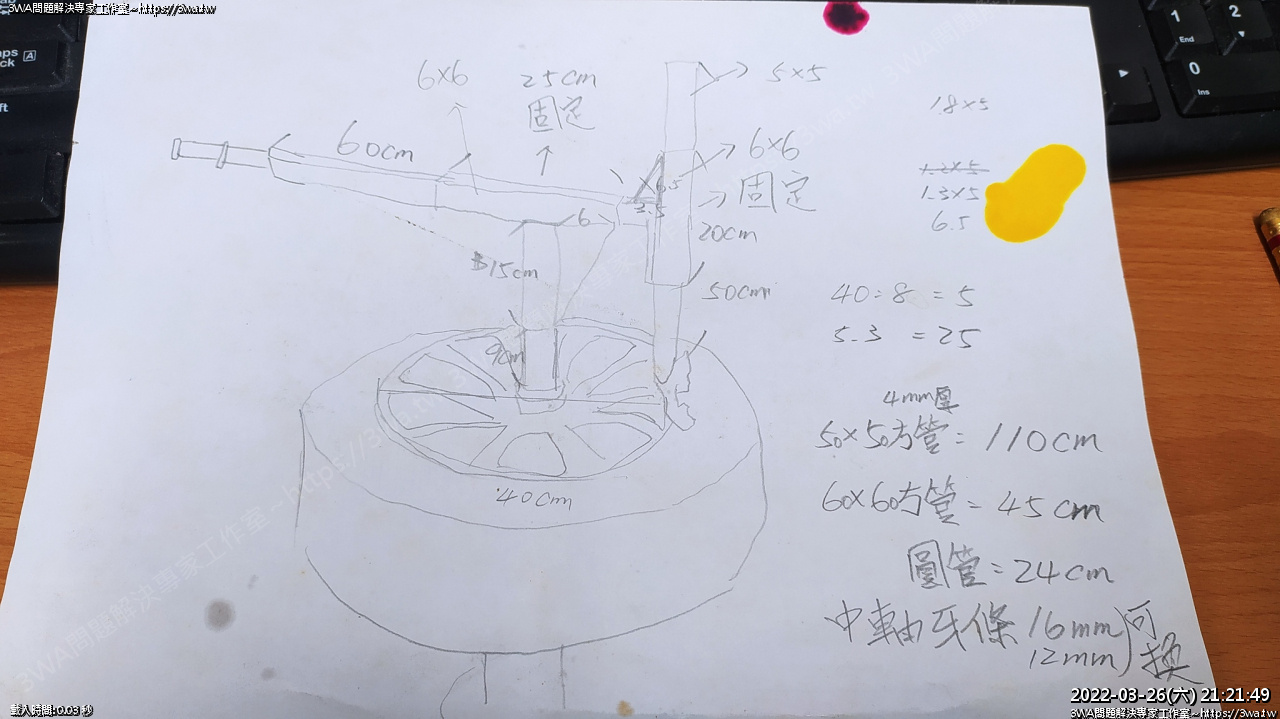 3WA問題解決專家工作室~https://3wa.tw
6×6
25cm
固定
5×5
60cm
6×6
固定
1.8×5
1.2×5
1.3×5
6.5
6
2.5
20cm
15cm
50cm
9cm
40cm
40÷8=5
5.3 =25
4mm厚
50×50方管=110cm
60×60方管=45cm
圓管=24cm
中軸牙條 16mm
12mm
可換
1
End
2
0
Ins
2022-03-26(六) 21:21:49
載入時間:0.03 秒
3WA問題解決專家工作室~https://3wa.tw